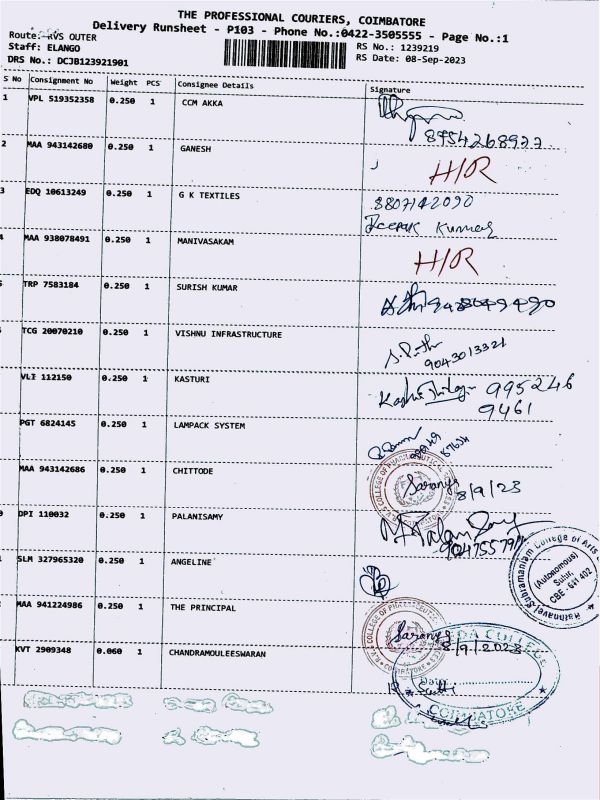 THE PROFESSIONAL COURIERS, COIMBATORE
Delivery Runsheet - P103 - Phone No.:0422-3505555 - Page No.:1
Route: RVS OUTER
Staff: ELANGO
RS No.: 1239219
DRS No.: DCJB123921901
RS Date: 08-Sep-2023
S No Consignment No Weight PCS Consignee Details Signature
1 VPL 519352358 0.250 1 CCM AKKA
8954268922
2 MAA 943142680 0.250 1 GANESH H/R
3 EDQ 10613249 0.250 1 G K TEXTILES 8807142090
Deepak Kumar
4 MAA 938078491 0.250 1 MANIVASAKAM H/R
TRP 7583184 0.250 1 SURISH KUMAR
TCG 20070210 0.250 1 VISHNU INFRASTRUCTURE
9043013321
VLI 112150 0.250 1 KASTURI 995246
9461
PGT 6824145 0.250 1 LAMPACK SYSTEM
MAA 943142686 0.250 1 CHITTODE Saranya 8/9/23
DPI 110032 0.250 1 PALANISAMY
SLM 327965320 0.250 1 ANGELINE
Rathnavel Subramaniam College of Arts
(Autonomous)
Sulur,
CBE - 641 402
MAA 941224986 0.250 1 THE PRINCIPAL Saranya
8/9/2023
KVT 2909348 0.060 1 CHANDRAMOULEESWARAN
COLLEGE
COIMBATORE